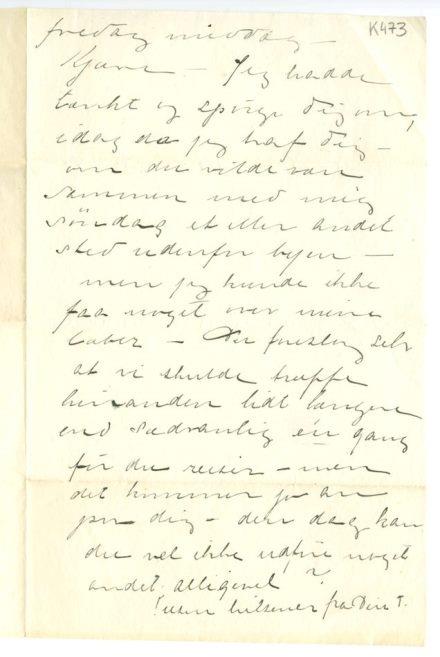 K473
fredag middag –
Kjære – Jeg hadde
tænkt og spørge dig om,
idag da jeg traf dig –
om du vilde være
sammen med mig
söndag et eller andet
sted udenfor byen –
men jeg kunde ikke
faa noget over mine
læber – Du foreslog selv
at vi skulde træffe
hinanden lidt længere
end sædvanlig én gang
för du reiser – men
det kommer jo an
paa dig – den dag kan
du vel ikke udføre noget
andet alligevel ?
hilsener fra Din T.